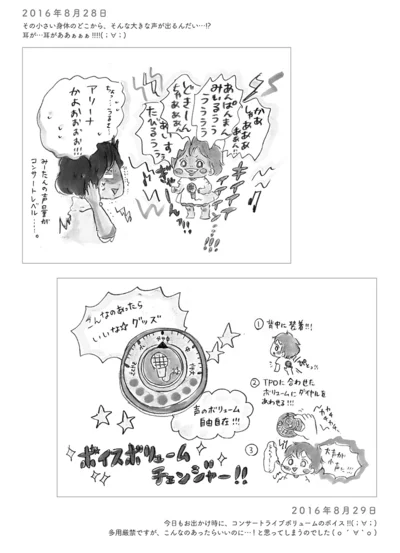 2016年8月28日
その小さい身体のどこから、そんな大きな声が出るんだい…!?
耳が…耳がああぁぁぁ!!!!( ; ∀ ; )
アリーナ
かよおおお
おお!!!
みーたんの声量が
コンサートレベル…。
かぁ
あんぱんまん
みいるうう
うううう
どきーん
じゃああああん
たべるううう
キイイーン
!!!
こんなのあったら
いいな☆グッズ
声のボリューム
自由自在!!!
ボイスボリューム
チェンジャー!!
① 背中に装着!!!
② TPOに合わせた
ボリュームにダイヤルを
あわせる!!!
③
2016年8月29日
今日もお出かけ時に、コンサートライブボリュームのボイス!!( ; ∀ ; )
多用厳禁ですが、こんなのあったらいいのに…!と思ってしまうのでした( o ´ ∀ ` o )